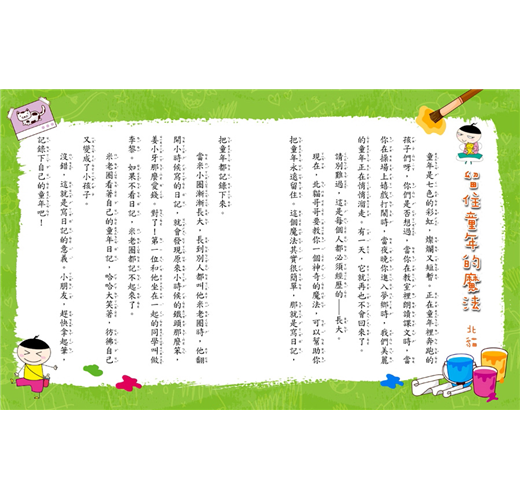 留住童年的魔法
北貓
童年是七色的彩虹,燦爛又短暫。正在童年裡奔跑的
孩子們呀,你們是否想過,當你在教室裡朗讀課文時,當
你在操場上嬉戲打鬧時,當夜晚你進入夢鄉時,我們美麗
的童年正在悄悄溜走。有一天,它就再也不會回來了。
請別難過,這是每個人都必須經歷的——長大。
現在,北貓哥哥要教你一個神奇的魔法,可以幫助你
把童年永遠留住。這個魔法其實很簡單,那就是寫日記,
把童年都記錄下來。
當米小圈漸漸長大,長到別人都叫他米老圈時,他翻
開小時候寫的日記,就會發現原來小時候的鐵頭那麼笨,
姜小牙那麼愛錢。對了!第一位和他坐在一起的同學叫做
季黎。如果不看日記,米老圈都記不起來了。
米老圈看著自己的童年日記,哈哈大笑著,彷彿自己
又變成了小孩子。
沒錯,這就是寫日記的意義。小朋友,趕快拿起筆,
記錄下自己的童年吧!